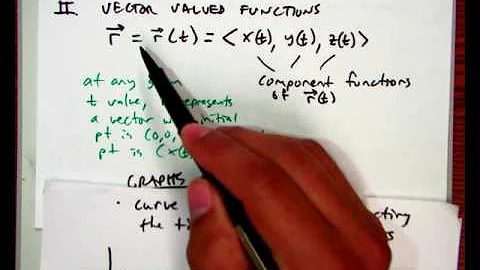 II VECTOR VALUED FUNCTIONS
r⃗ = r⃗(t) = < x(t), y(t), z(t) >
component functions
of r⃗(t)
at any
t value,
represents
a vector initial
pt is (0,0,
pt is (x(t
GRAPHS
• curve
the